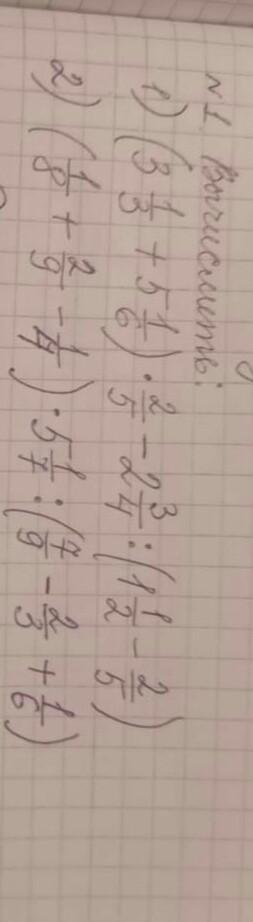 №1. Вычислить:
1) (3 1/3 + 5 1/6) · 2/5 - 2 3/4 : (1 1/2 - 2/5)
2) (1/8 + 2/9 - 1/4) · 5 1/7 : (7/9 - 2/3 + 1/6)